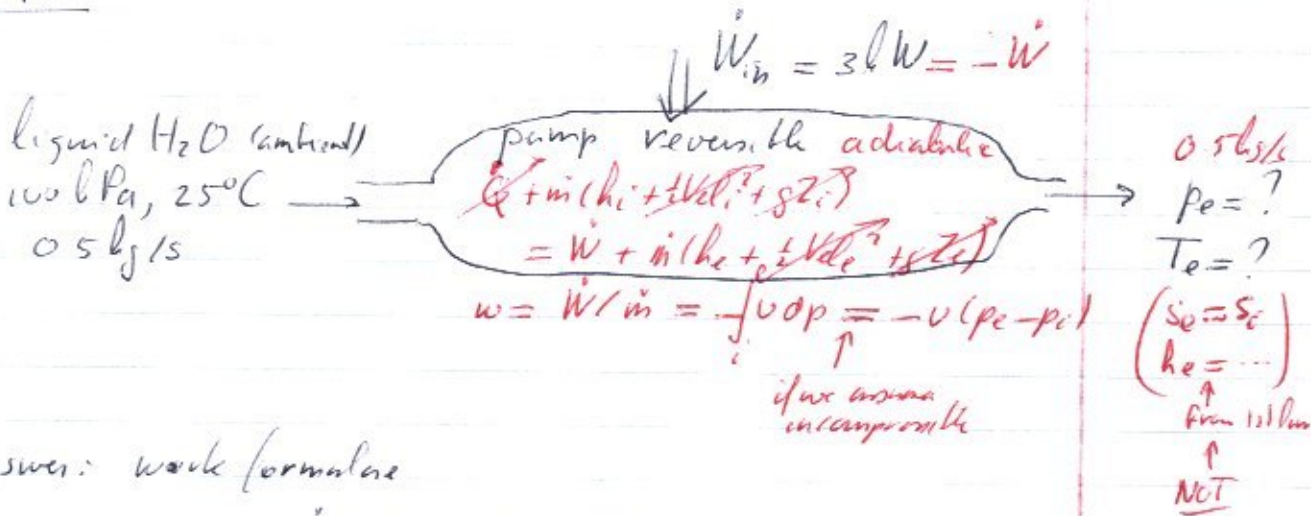 Ẇin = 3 kW = −Ẇ
liquid H2O (ambient)
100 kPa, 25°C
0.5 kg/s
pump reversible adiabatic
Q̇ + ṁ(hi + ½Veli² + gZi)
= Ẇ + ṁ(he + ½Vele² + gZe)
w = Ẇ/ṁ = −∫ie υ dp = −υ(pe − pi)
if we assume
incompressible
0.5 kg/s
pe = ?
Te = ?
(se = si
he = ...)
from 1st law
NOT
swer: work formulae